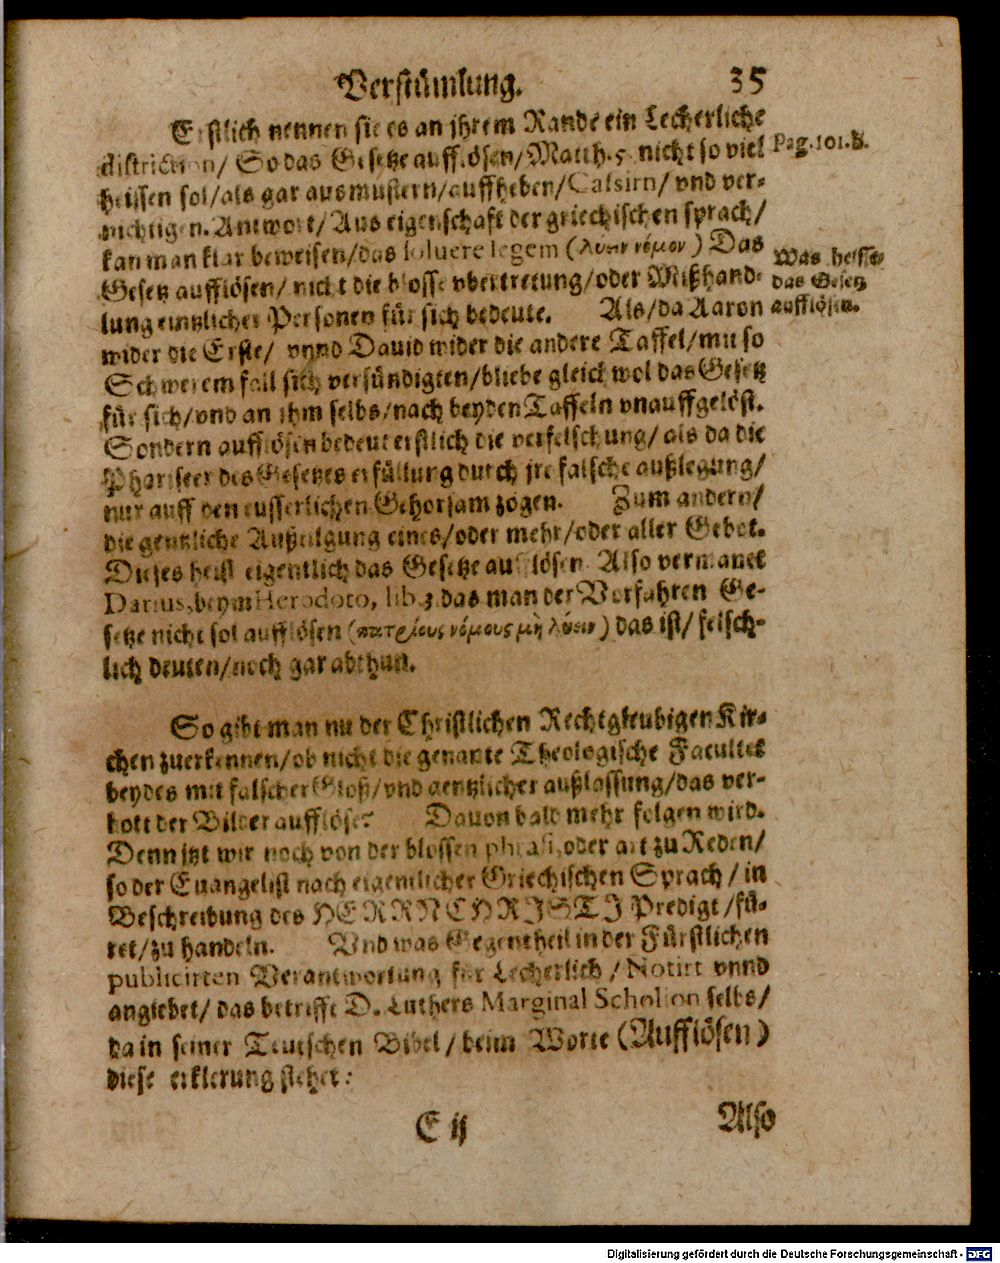 Verstümlung. 35
Erstlich nennen sie es an jhrem Rande ein Lecherliche
distriction/ So das Gesetze aufflösen/Matth. 5. nicht so viel
Pag. 101. b.
heissen sol/als gar ausmustern/auffheben/Cassirn/ vnd ver-
nichtigen. Antwort/ Aus eigenschafft der griechischen sprach/
kan man klar beweisen/das soluere legem (λυειν νόμον) Das
Gesetz aufflösen/ nicht die blosse vbertretung/oder Mißhand-
Was heisse
das Gesetz
aufflösen.
lung eintzlicher Personen für sich bedeute. Als/da Aaron
wider die Erste/ vnnd Dauid wider die andere Taffel/mit so
Schwerem fall sich versündigten/bliebe gleichwol das Gesetz
für sich/vnd an jhm selbs/nach beyden Taffeln vnauffgelöst.
Sondern aufflösen bedeut erstlich die verfelschung/ als da die
Phariseer des Gesetzes erfüllung durch jre falsche außlegung/
nur auff den eusserlichen Gehorsam zogen. Zum andern/
die gentzliche Außtilgung eines/oder mehr/oder aller Gebot.
Dieses heist eigentlich das Gesetze aufflösen. Also vermanet
Darius, beym Herodoto, lib. 3. das man der Vorfahren Ge-
setze nicht sol aufflösen (πατρίους νόμους μὴ λύειν) das ist/ felsch-
lich deuten/noch gar abthun.
So gibt man nu der Christlichen Rechtgleubigen Kir-
chen zuerkennen/ob nicht die genante Theologische Facultet
beydes mit falscher Gloß/vnd gentzlicher außlassung/das ver-
bott der Bilder aufflöse? Dauon bald mehr folgen wird.
Denn jtzt wir noch von der blossen phrasi, oder art zu Reden/
so der Euangelist nach eigentlicher Griechischen Sprach/ in
Beschreibung des HERRN CHRISTI Predigt/fü-
ret/zu handeln. Vnd was Gegentheil in der Fürstlichen
publicirten Verantwortung für Lecherlich/ Notirt vnnd
angiebet/ das betriffe D. Luthers Marginal Scholion selbs/
da in seiner Teutschen Bibel/ beim Worte (Aufflösen)
diese erklerung stehet:
E ij Also
Digitalisierung gefördert durch die Deutsche Forschungsgemeinschaft - DFG